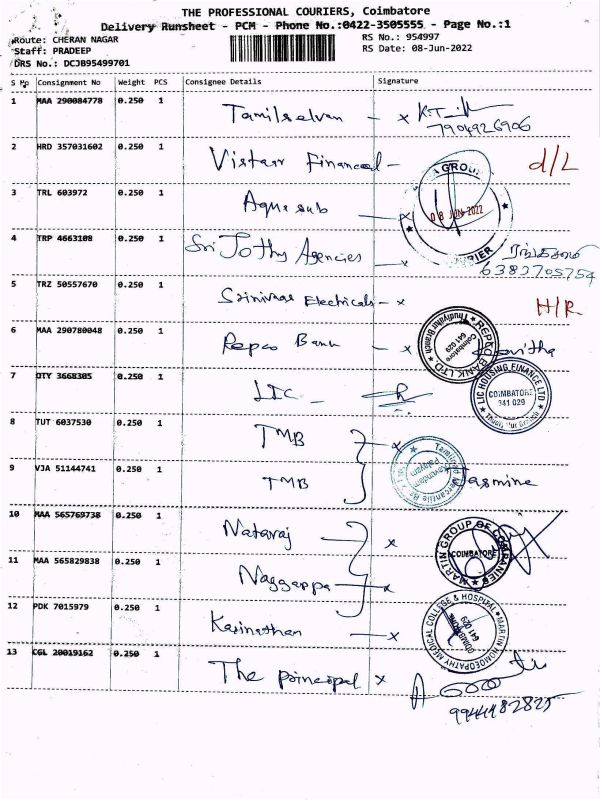 THE PROFESSIONAL COURIERS, Coimbatore
Delivery Runsheet - PCM - Phone No.:0422-3505555 - Page No.:1
Route: CHERAN NAGAR RS No.: 954997
Staff: PRADEEP RS Date: 08-Jun-2022
DRS No.: DCJB95499701
S No Consignment No Weight PCS Consignee Details Signature
1 MAA 290084778 0.250 1 Tamilselvan - x
7904926906
2 HRD 357031602 0.250 1 Vistaar Financeal - d/L
3 TRL 603972 0.250 1 Aqua sub - x 08 JUN 2022
4 TRP 4663108 0.250 1 Sri Jothy Agencies - x
6383705754
5 TRZ 50557670 0.250 1 Srinivas Electricals - x H/R
6 MAA 290780048 0.250 1 Repco Bank - x REPCO BANK LTD. Thudiyalur Branch Coimbatore 641 029
7 DTY 3668305 0.250 1 LIC - LIC HOUSING FINANCE LTD COIMBATORE 641 029
8 TUT 6037530 0.250 1 TMB - x
9 VJA 51144741 0.250 1 TMB Tamilnad Mercantile Jasmine
10 MAA 565769738 0.250 1 Nataraj - x MARTIN GROUP OF COMPANIES COIMBATORE
11 MAA 565829838 0.250 1 Naggappa - x
12 PDK 7015979 0.250 1 Kasinathan - x MARTIN HOMOEOPATHY MEDICAL COLLEGE & HOSPITAL COIMBATORE 641 029
13 CGL 20019162 0.250 1 The principal x
9944482825